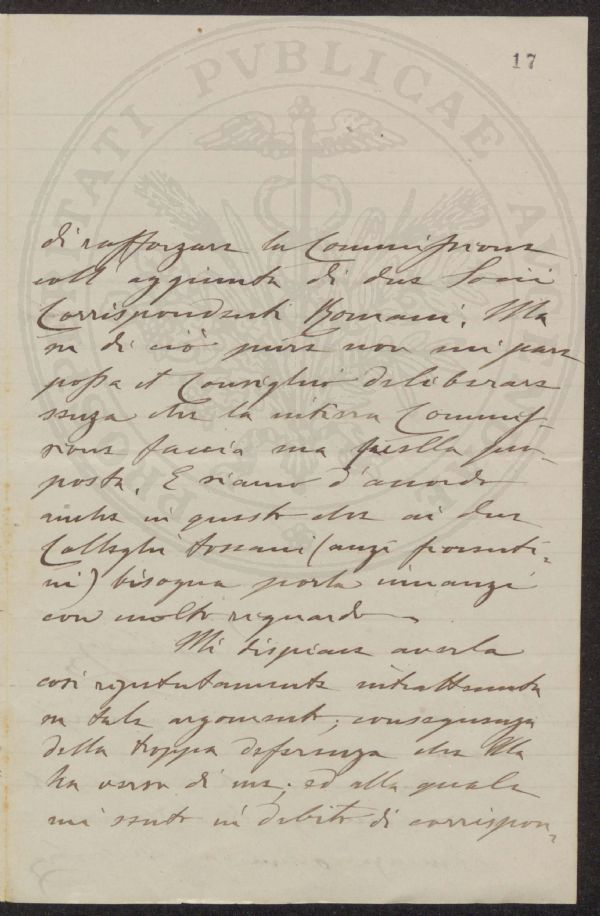 17
PROSPERITATI PVBLICAE AVGENDAE
di rafforzare la Commissione
coll' aggiunta di due Socii
Corrispondenti Romani. Ma
su di ciò pure non mi pare
possa il Consiglio deliberare
senza che la intiera Commis-
sione faccia sua quella pro-
posta. E siamo d'accordo
anche in questo che ai due
Colleghi toscani (anzi fiorenti-
ni) bisogna porla innanzi
con molto riguardo.
Mi dispiace averla
così ripetutamente intrattenuta
su tale argomento; conseguenza
della troppa deferenza che Ella
ha verso di me; ed alla quale
mi sento in debito di corrispon-